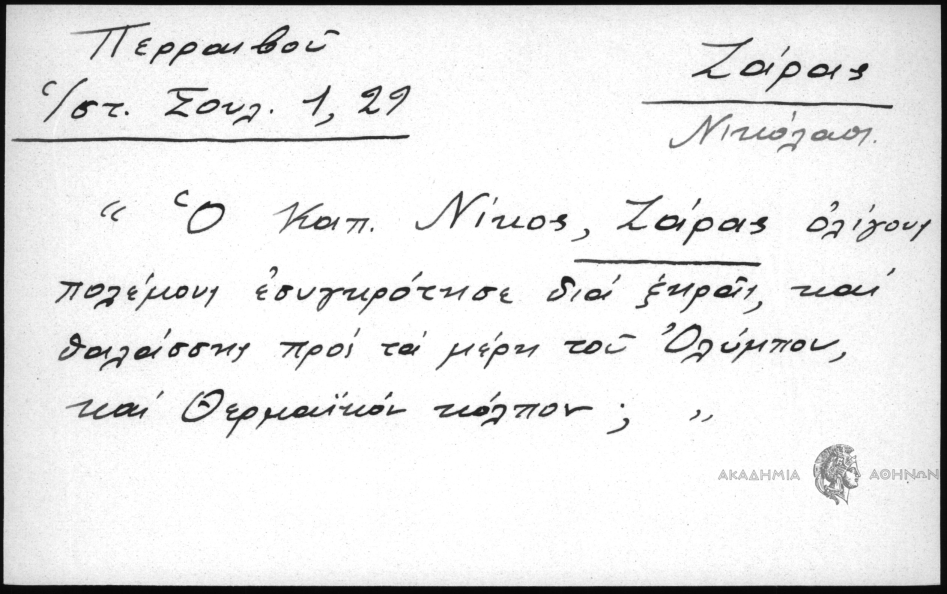 Περραιβοῦ
Ἱστ. Σουλ. 1, 29
Ζάρας
Νικόλαος.
“ Ὁ Καπ. Νίκος, Ζάρας ὀλίγους
πολέμους ἐσυγκρότησε διά ξηρᾶς, καί
θαλάσσης πρός τά μέρη τοῦ Ὀλύμπου,
καί Θερμαϊκόν κόλπον ; ”
ΑΚΑΔΗΜΙΑ ΑΘΗΝΩΝ